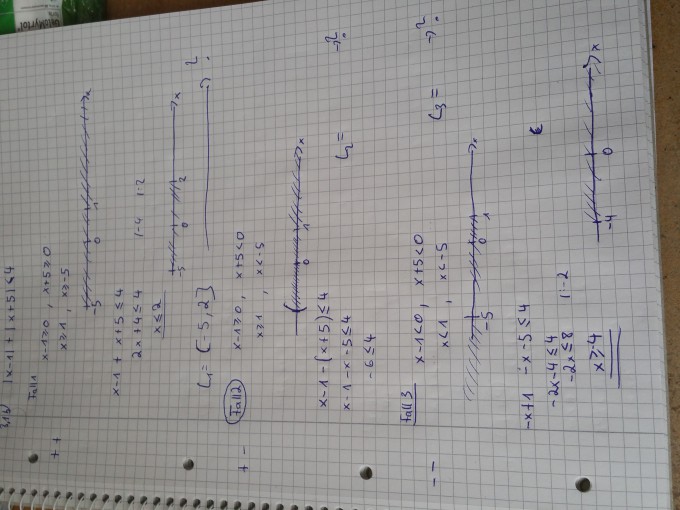 |x-1| + |x+5| ≤ 4
Fall 1
++ x-1≥0, x+5≥0
x≥1, x≥-5
-5 0 1 x
x-1 + x+5 ≤ 4
2x+4 ≤ 4 |-4 |:2
x≤2
-5 0 2 x
L₁= (-5,2] → ?
Fall 2
+- x-1≥0, x+5<0
x≥1, x<-5
0 1 x
x-1-(x+5) ≤ 4
x-1-x-5 ≤ 4
-6 ≤ 4
L₂= → ?
Fall 3
-- x-1<0, x+5<0
x<1, x<-5
L₃= → ?
-5 0 1 x
-x+1 -x-5 ≤ 4
-2x-4 ≤ 4
-2x ≤ 8 |:-2
x ≥ -4
-4 0 x